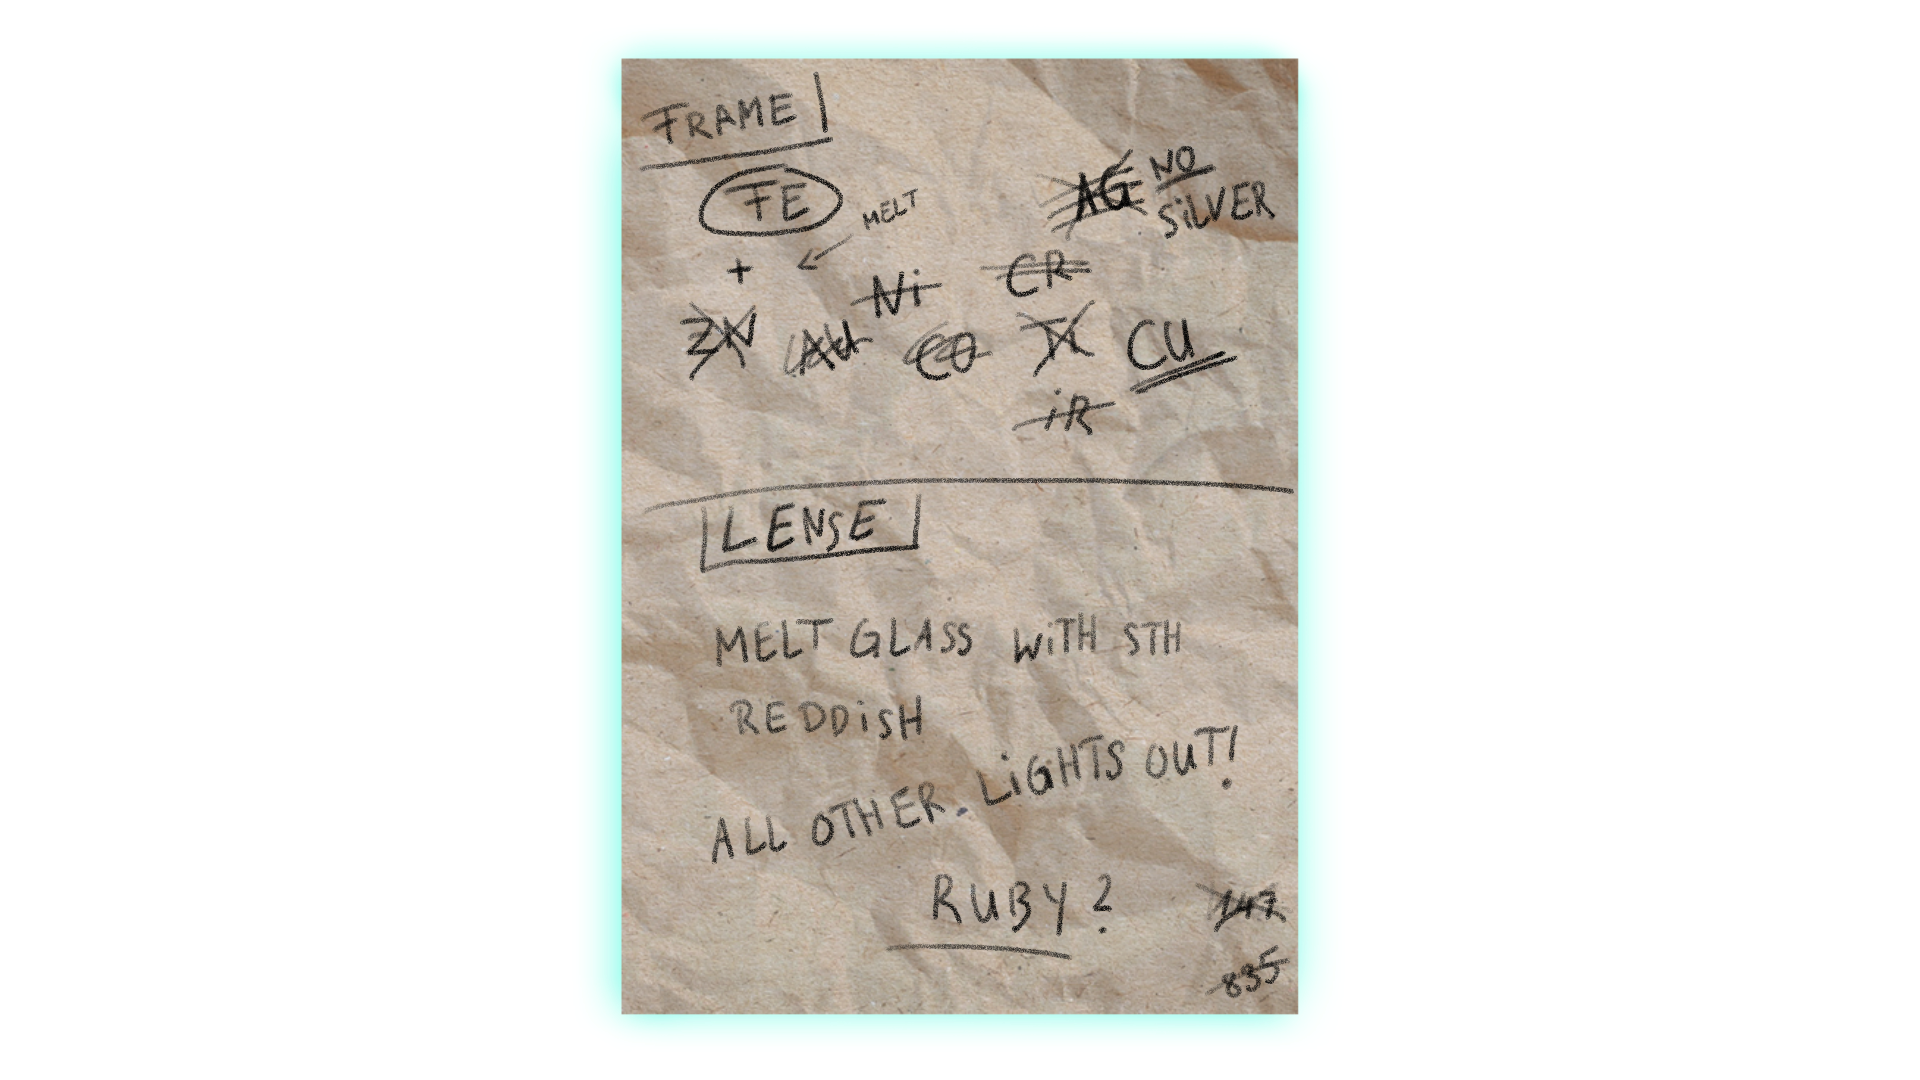 FRAME
FE
MELT
AG NO
SiLVER
+
Ni CR
ZN AU CO Ti CU
iR
LENSE
MELT GLASS WiTH STH
REDDiSH
ALL OTHER LiGHTS OUT!
RUBY?
147
835